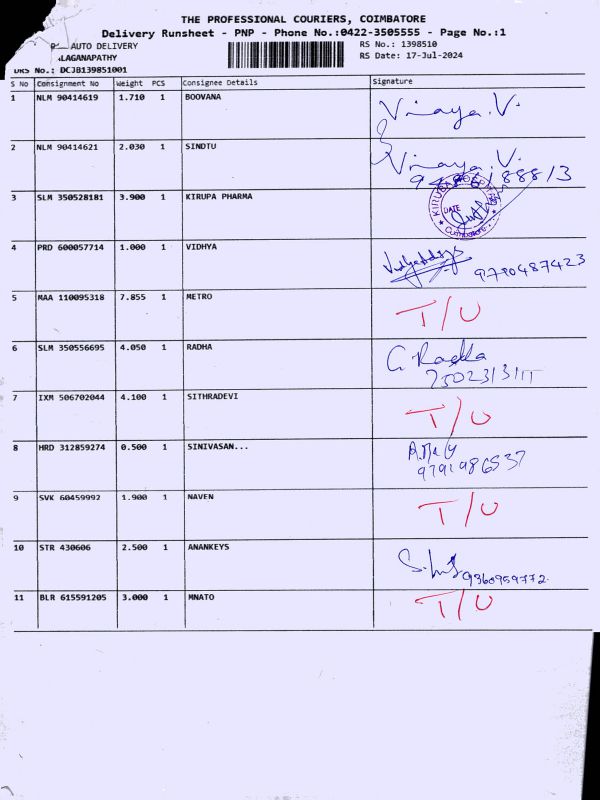 THE PROFESSIONAL COURIERS, COIMBATORE
Delivery Runsheet - PNP - Phone No.:0422-3505555 - Page No.:1
AUTO DELIVERY RS No.: 1398510
LAGANAPATHY RS Date: 17-Jul-2024
DRS No.: DCJB139851001
S No Consignment No Weight PCS Consignee Details Signature
1 NLM 90414619 1.710 1 BOOVANA Vinaya.V.
2 NLM 90414621 2.030 1 SINDTU Vinaya.V.
3 SLM 350528181 3.900 1 KIRUPA PHARMA DATE Coimbatore
4 PRD 600057714 1.000 1 VIDHYA 9790487423
5 MAA 110095318 7.855 1 METRO T/U
6 SLM 350556695 4.050 1 RADHA G. Radha
7 IXM 506702044 4.100 1 SITHRADEVI T/U
8 HRD 312859274 0.500 1 SINIVASAN...
9791986537
9 SVK 60459992 1.900 1 NAVEN T/U
10 STR 430606 2.500 1 ANANKEYS 9360959772.
11 BLR 615591205 3.000 1 MNATO T/U